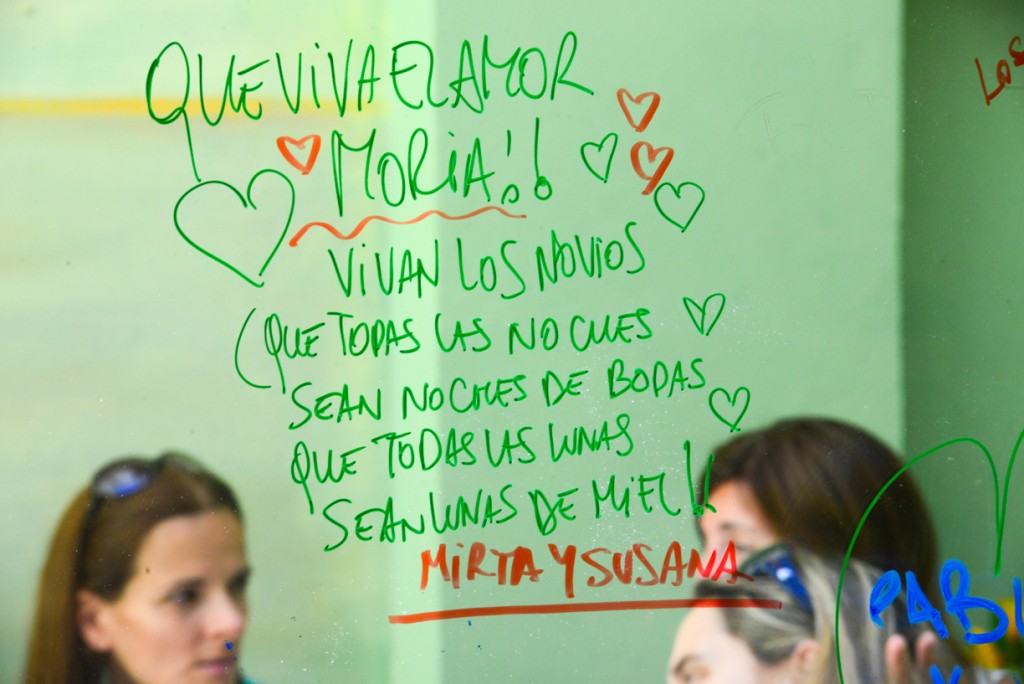 QUE VIVA EL AMOR
MORIA!!
VIVAN LOS NOVIOS
(QUE TODAS LAS NOCHES
SEAN NOCHES DE BODAS
QUE TODAS LAS LUNAS
SEAN LUNAS DE MIEL!!
MIRTA Y SUSANA
LOS